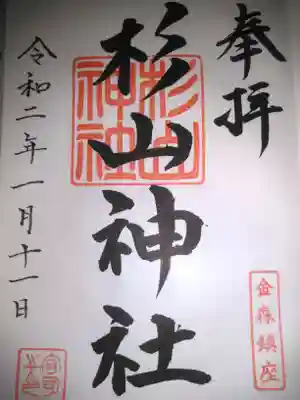 奉拝
杉山神社
杉山神社
令和二年一月十一日
鎮座